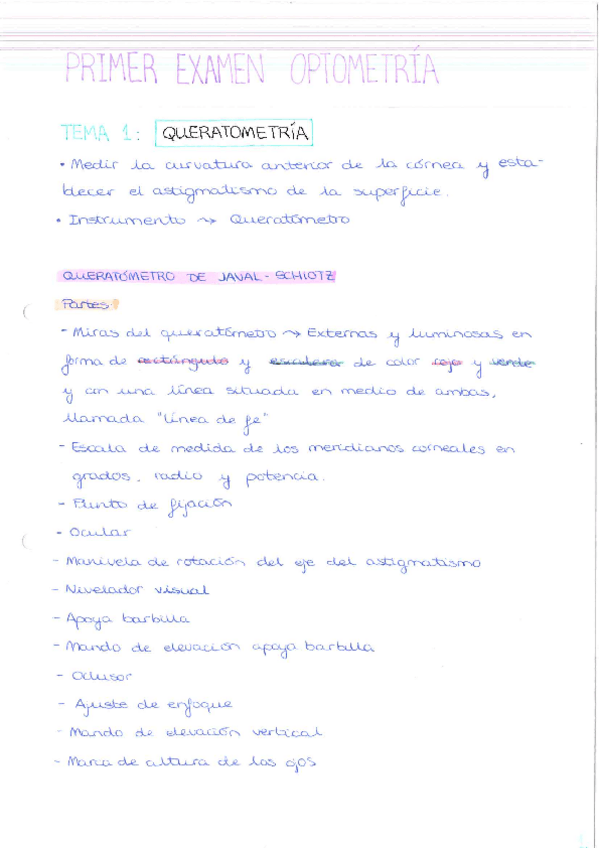 PRIMER EXAMEN OPTOMETRÍA
TEMA 1: QUERATOMETRÍA
• Medir la curvatura anterior de la córnea y esta-
blecer el astigmatismo de la superficie.
• Instrumento ⇝ Queratómetro
QUERATÓMETRO DE JAVAL-SCHIOTZ
Partes:
- Miras del queratómetro → Externas y luminosas en
forma de rectángulo y escalera de color rojo y verde
y con una línea situada en medio de ambas,
llamada "línea de fe"
- Escala de medida de los meridianos corneales en
grados, radio y potencia.
- Punto de fijación
- Ocular
- Manivela de rotación del eje del astigmatismo
- Nivelador visual
- Apoya barbilla
- Mando de elevación apoya barbilla
- Oclusor
- Ajuste de enfoque
- Mando de elevación vertical
- Marca de altura de los ojos